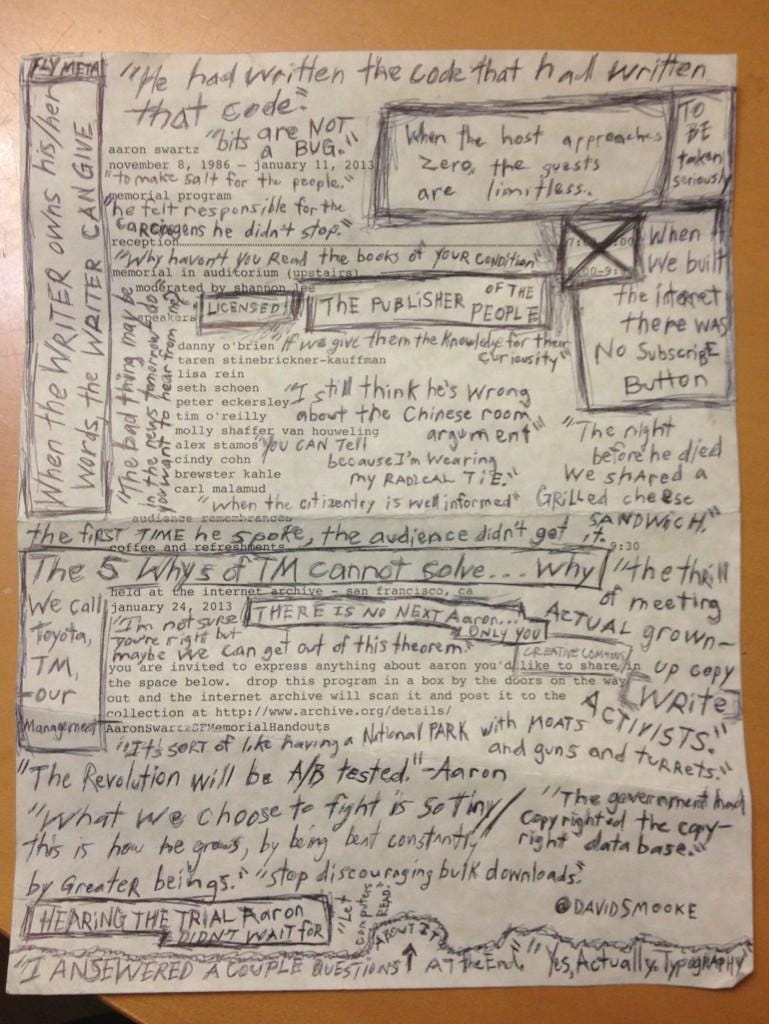 FLY META
"He had written the code that had written
that code."
"bits are NOT
a BUG."
When the host approaches
zero, the guests
are limitless.
TO
BE
taken
seriously
When the WRITER owns his/her
words, the WRITER CAN GIVE
aaron swartz
november 8, 1986 – january 11, 2013
"to make salt for the people."
memorial program
he felt responsible for the
carcinogens he didn't stop."
reception
"Why haven't you Read the books of YOUR CONDITION"
memorial in auditorium (upstairs)
moderated by shannon lee
speakers
When
We built
the internet
there WAS
No Subscribe
Button
LICENSED!
THE PUBLISHER OF THE PEOPLE
"The bad thing may be
in the news tomorrow, do
you want to hear from me?"
danny o'brien
"if we give them the knowledge for their
curiousity"
taren stinebrickner-kauffman
lisa rein
seth schoen
peter eckersley
tim o'reilly
molly shaffer van houweling
alex stamos
cindy cohn
brewster kahle
carl malamud
"I still think he's wrong
about the Chinese room
argument"
"YOU CAN Tell
because I'm wearing
my RADICAL TIE."
"when the citizentry is well informed"
"The night
before he died
we shared a
Grilled cheese
SANDWICH."
audience remembrances
the FIRST TIME he spoke, the audience didn't get it.
coffee and refreshments
9:30
The 5 Whys of TM cannot solve... why
held at the internet archive – san francisco, ca
january 24, 2013
We call
Toyota,
TM,
our
Management
THERE IS NO NEXT Aaron...
ONLY YOU
"I'm not sure
you're right but
maybe we can get out of this theorem."
CREATIVE COMMONS
"the thrill
of meeting
ACTUAL grown-
up copy
WRite
ACTIVISTS."
you are invited to express anything about aaron you'd like to share in
the space below. drop this program in a box by the doors on the way
out and the internet archive will scan it and post it to the
collection at http://www.archive.org/details/
AaronSwartzSFMemorialHandouts
"It's SORT of like having a National PARK with MOATS
and guns and turrets."
"The Revolution will be A/B tested." -Aaron
"What we choose to fight is so tiny/
this is how he grows, by being beat constantly
by Greater beings."
"The government had
copyrighted the copy-
right database."
"stop discouraging bulk downloads."
HEARING THE TRIAL Aaron
DIDN'T WAIT FOR
"Let
computers
READ."
@DAVIDSMOOKE
ABOUT IT
"I ANSEWERED A COUPLE QUESTIONS ↑ AT the End."
"Yes, Actually, Typography"